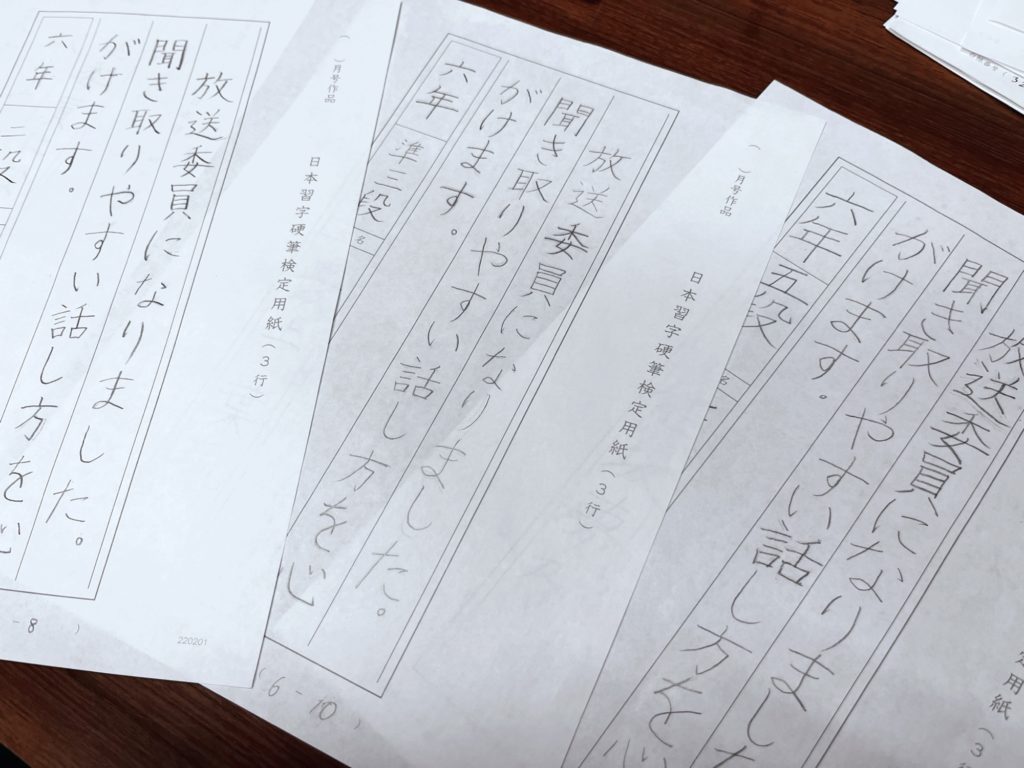 ( )月号作品
日本習字硬筆検定用紙(3行)
放送委員になりました。
聞き取りやすい話し方を心
がけます。
六年
二段
-8 )
220201
( )月号作品
日本習字硬筆検定用紙(3行)
放送委員になりました。
聞き取りやすい話し方を心
がけます。
六年
準三段
名
(6-10 )
定用紙(3行)
放送委員になりました
聞き取りやすい話し方を心
がけます。
六年
五段
名